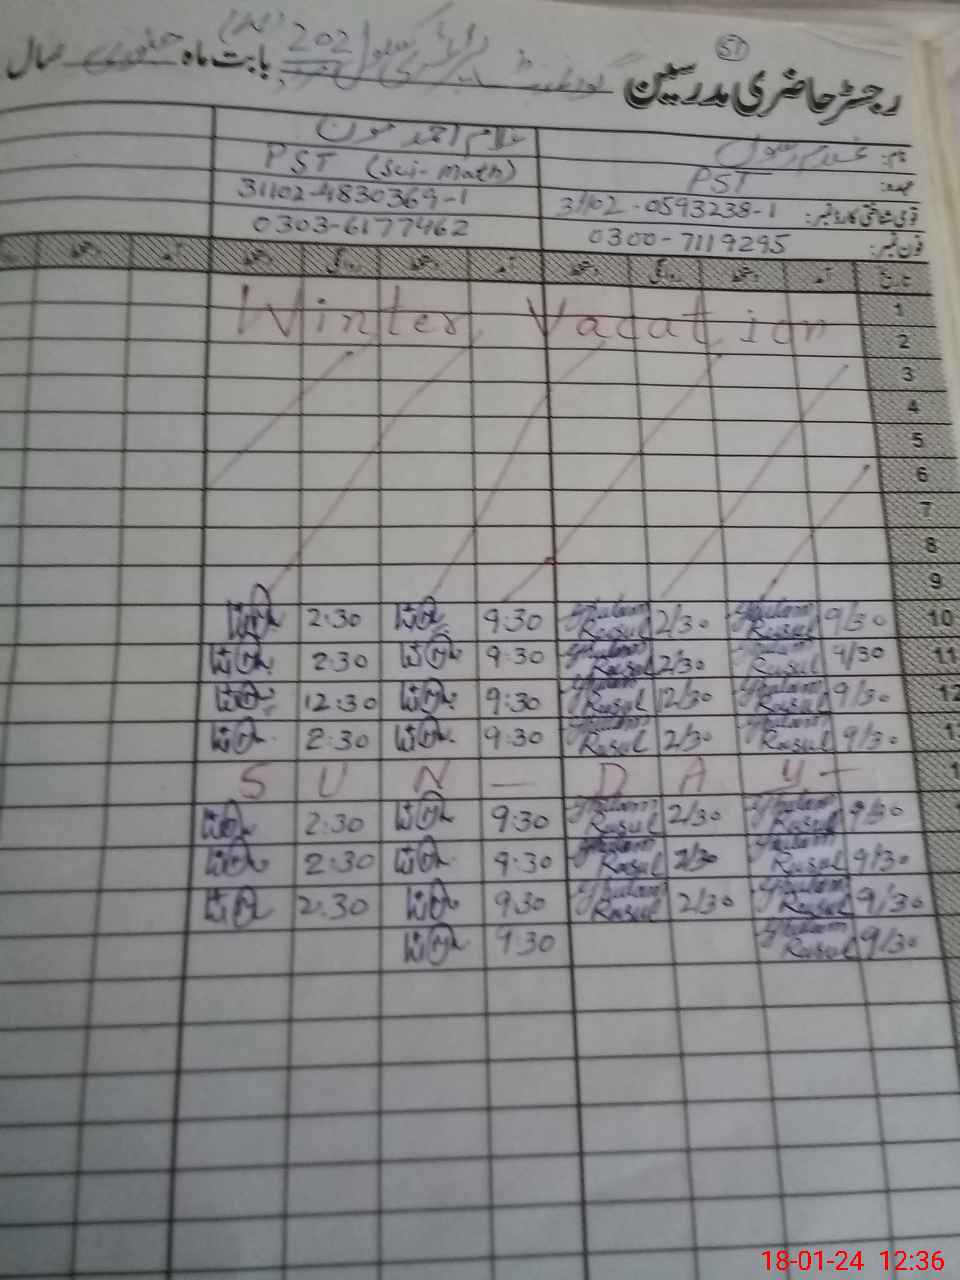 (51)
رجسٹر حاضری مدرسین گورنمنٹ پرائمری سکول بابت ماہ جنوری سال 202
نام: غلام رسول غلام احمد
عہدہ: PST PST (Sci-Math)
قومی شناختی کارڈ نمبر: 31102-0593238-1 31102-4830369-1
فون نمبر: 0300-7119295 0303-6177462
تاریخ آمد دستخط روانگی دستخط آمد دستخط روانگی دستخط آمد دستخط
1
Winter Vacation
2
3
4
5
6
7
8
9
2:30 9:30 Ghulam Rasul 2/30 Ghulam Rasul 9/30 10
2:30 9:30 Ghulam Rasul 2/30 Ghulam Rasul 9/30 11
12:30 9:30 Ghulam Rasul 12/30 Ghulam Rasul 9/30 12
2:30 9:30 Ghulam Rasul 2/30 Ghulam Rasul 9/30
SUN-DAY-
2:30 9:30 Ghulam Rasul 2/30 Ghulam Rasul 9/30
2:30 9:30 Ghulam Rasul 2/30 Ghulam Rasul 9/30
2:30 9:30 Ghulam Rasul 2/30 Ghulam Rasul 9/30
9:30 Ghulam Rasul 9/30
18-01-24 12:36